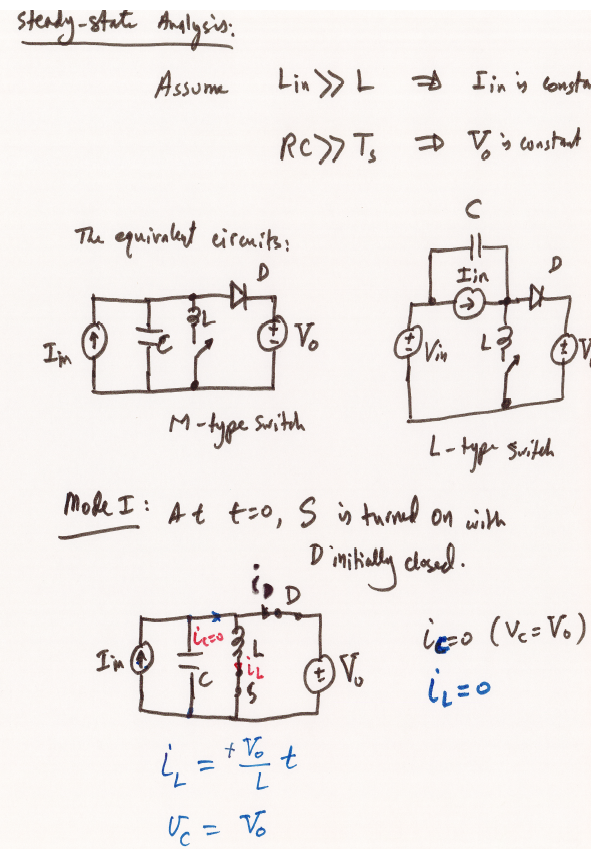 Steady-state Analysis:
Assume Lin >> L ⇒ Iin is consta
RC >> Ts ⇒ Vo is constant
The equivalent circuits:
C
D
Iin
D
L
Iin
C
Vo
Vin
L
V
M-type switch
L-type switch
Mode I: At t=0, S is turned on with
D initially closed.
iD D
ic=0
L
Iin
C
iL
S
Vo
ic=0 (Vc=Vo)
iL=0
iL = +Vo/L t
Vc = Vo